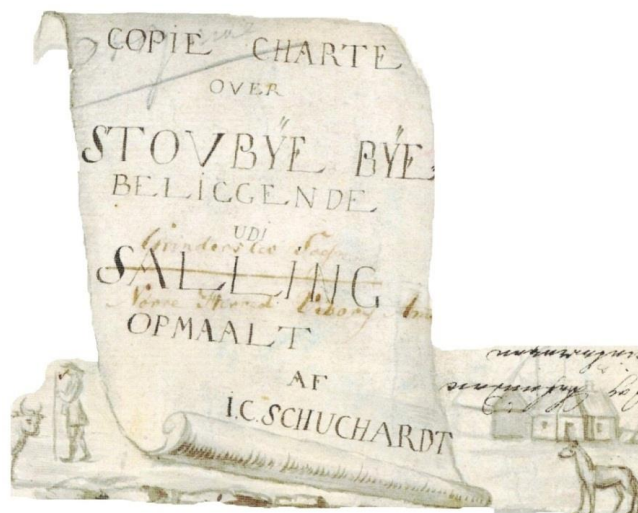 COPIE CHARTE
OVER
STOVBŸE BŸE
BELIGGENDE
UDI
Grinderslev Sogn
SALLING
Nørre Herred Viborg Amt
OPMAALT
AF
I.C. SCHUCHARDT